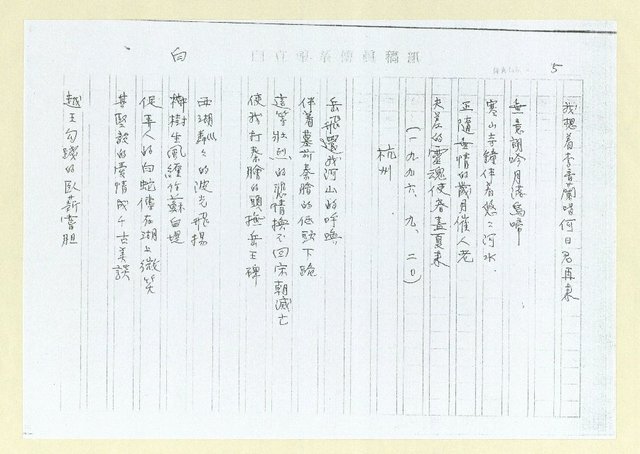 5
我想着李香蘭唱何日君再來
無意朗吟月落烏啼
寒山寺鐘伴着悠悠河水.
正隨無情的歲月催人老
夫差的靈魂使者盍夏東
(一九九六.九.二0)
杭州
岳飛還我河山的呼喚
伴着墓前秦檜的低頭下跪
這等壯烈的悲情換不回宋朝滅亡
使我打秦檜的頭撫岳王碑
西湖粼々的波光飛揚
柳樹生風纏竹蘇白堤
促事人的白蛇傳在湖上微笑
其堅歆的愛情成千古美談
越王勾踐的臥薪嘗胆
白